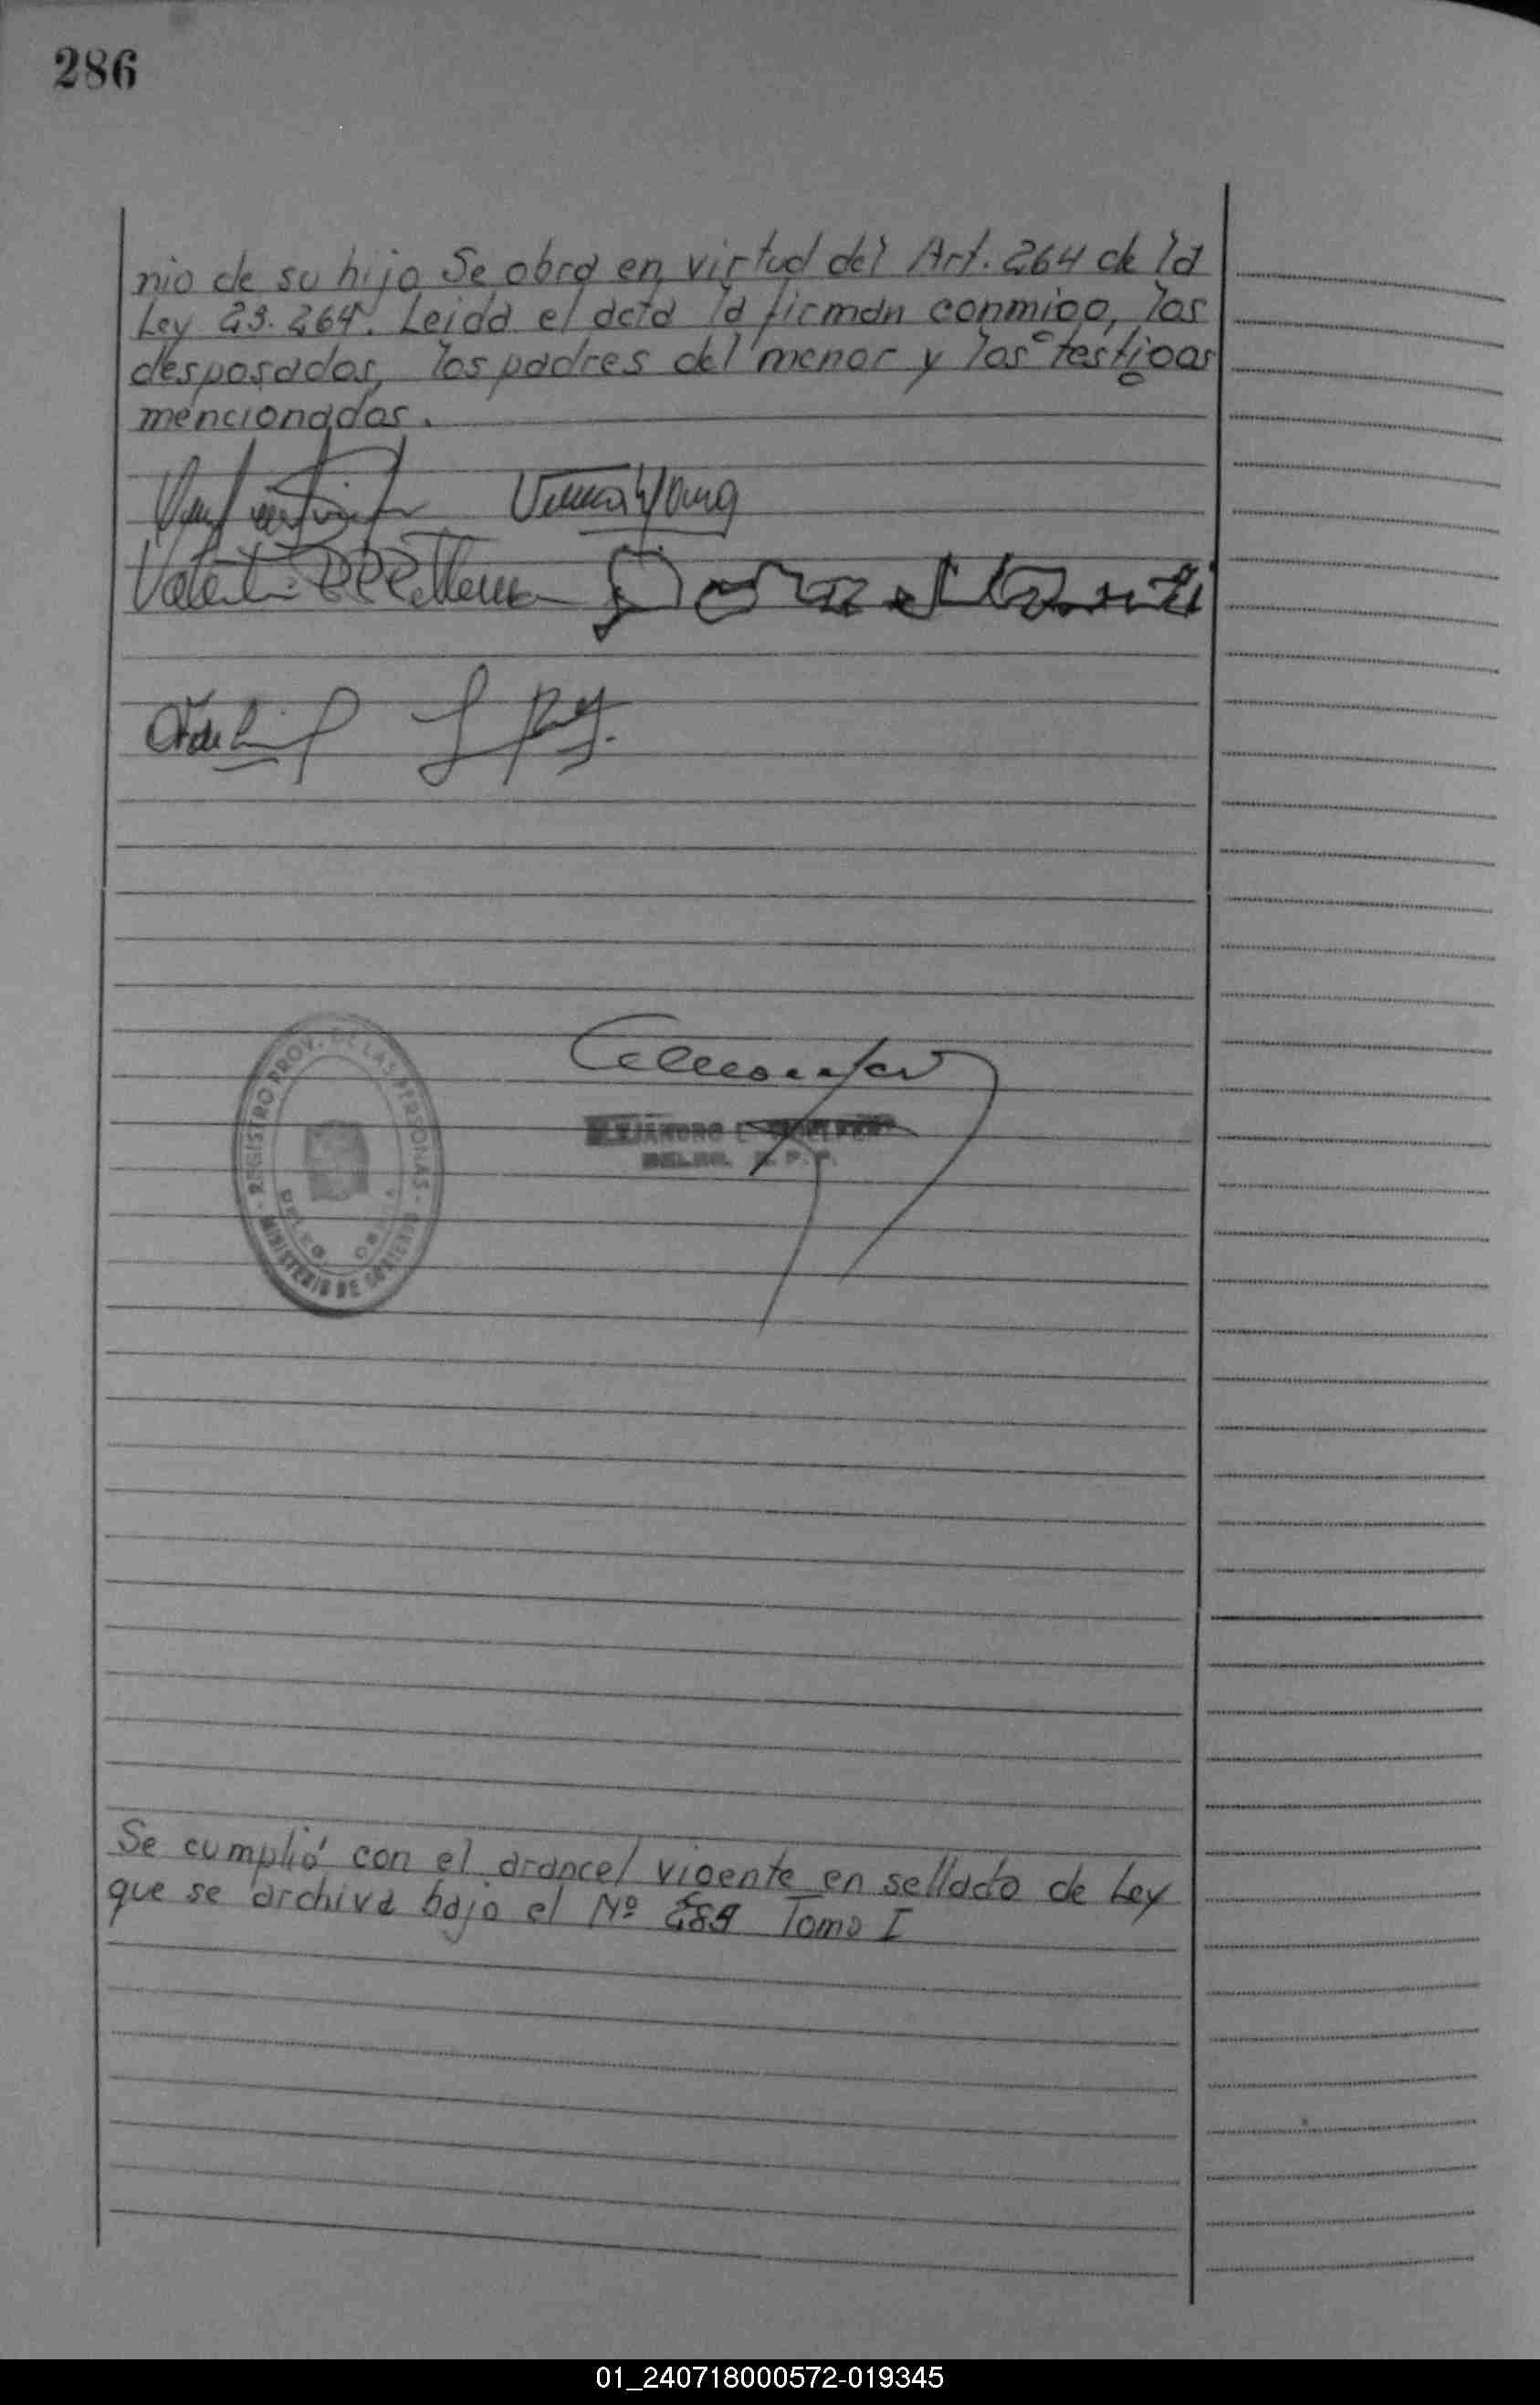 286
nio de su hijo Se obra en virtud del Art. 264 de la
Ley 23.264. Leida el acta la firman conmigo, los
desposados, los padres del menor y los testigos
mencionados.
Vilma Young
Valentin
REGISTRO PROV. DE LAS PERSONAS - MINISTERIO DE GOBIERNO
DELEG.
ALEJANDRO
DELEG. R. P. P.
Se cumplió con el arancel vigente en sellado de Ley
que se archiva bajo el Nº 289 Tomo I
01_240718000572-019345